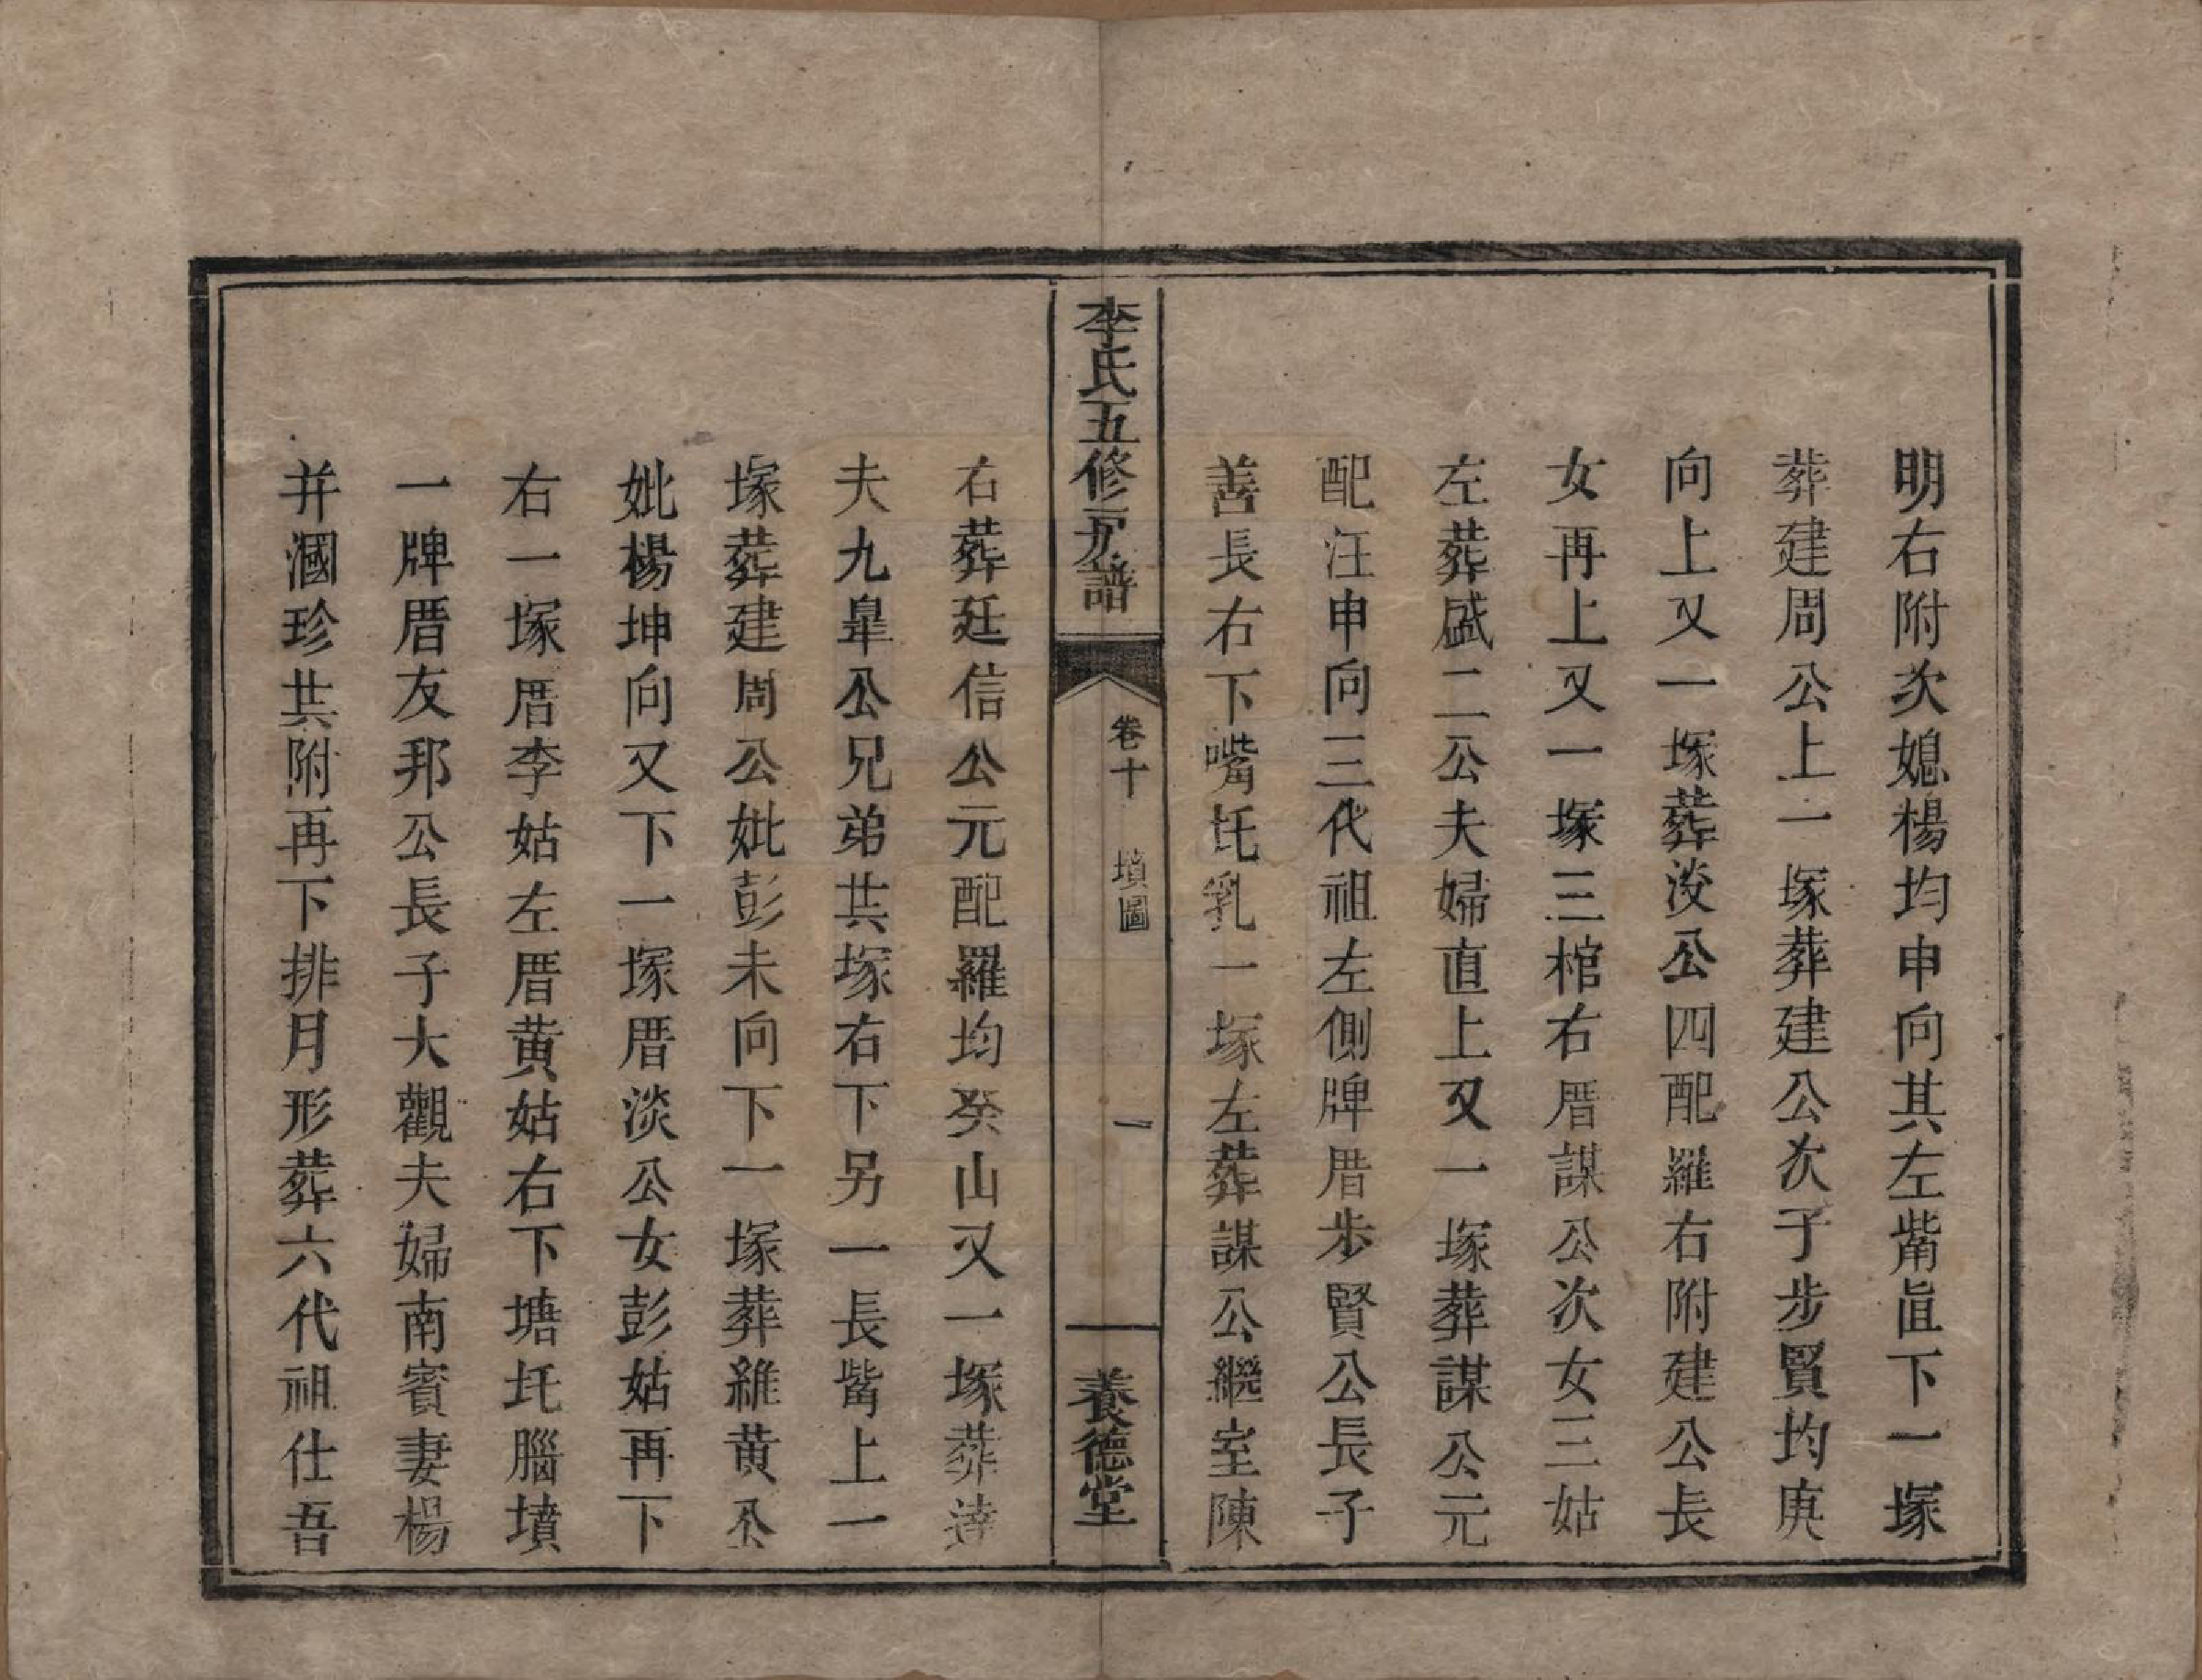 明右附次媳楊均申向其左觜直下一塚
葬建周公上一塚葬建公次子步賢均庚
向上又一塚葬淡公四配羅右附建公長
女再上又一塚三棺右厝謀公次女三姑
左葬盛二公夫婦直上又一塚葬謀公元
配汪申向三代祖左側牌厝步賢公長子
善長右下嘴圫乳一塚左葬謀公繼室陳
李氏五修房譜
卷十
墳圖
一
養德堂
右葬廷信公元配羅均癸山又一塚葬達
夫九臯公兄弟共塚右下另一長觜上一
塚葬建周公妣彭未向下一塚葬維黄公
妣楊坤向又下一塚厝淡公女彭姑再下
右一塚厝李姑左厝黄姑右下塘圫腦墳
一牌厝友邦公長子大觀夫婦南賓妻楊
并瀾珍共附再下排月形葬六代祖仕吾